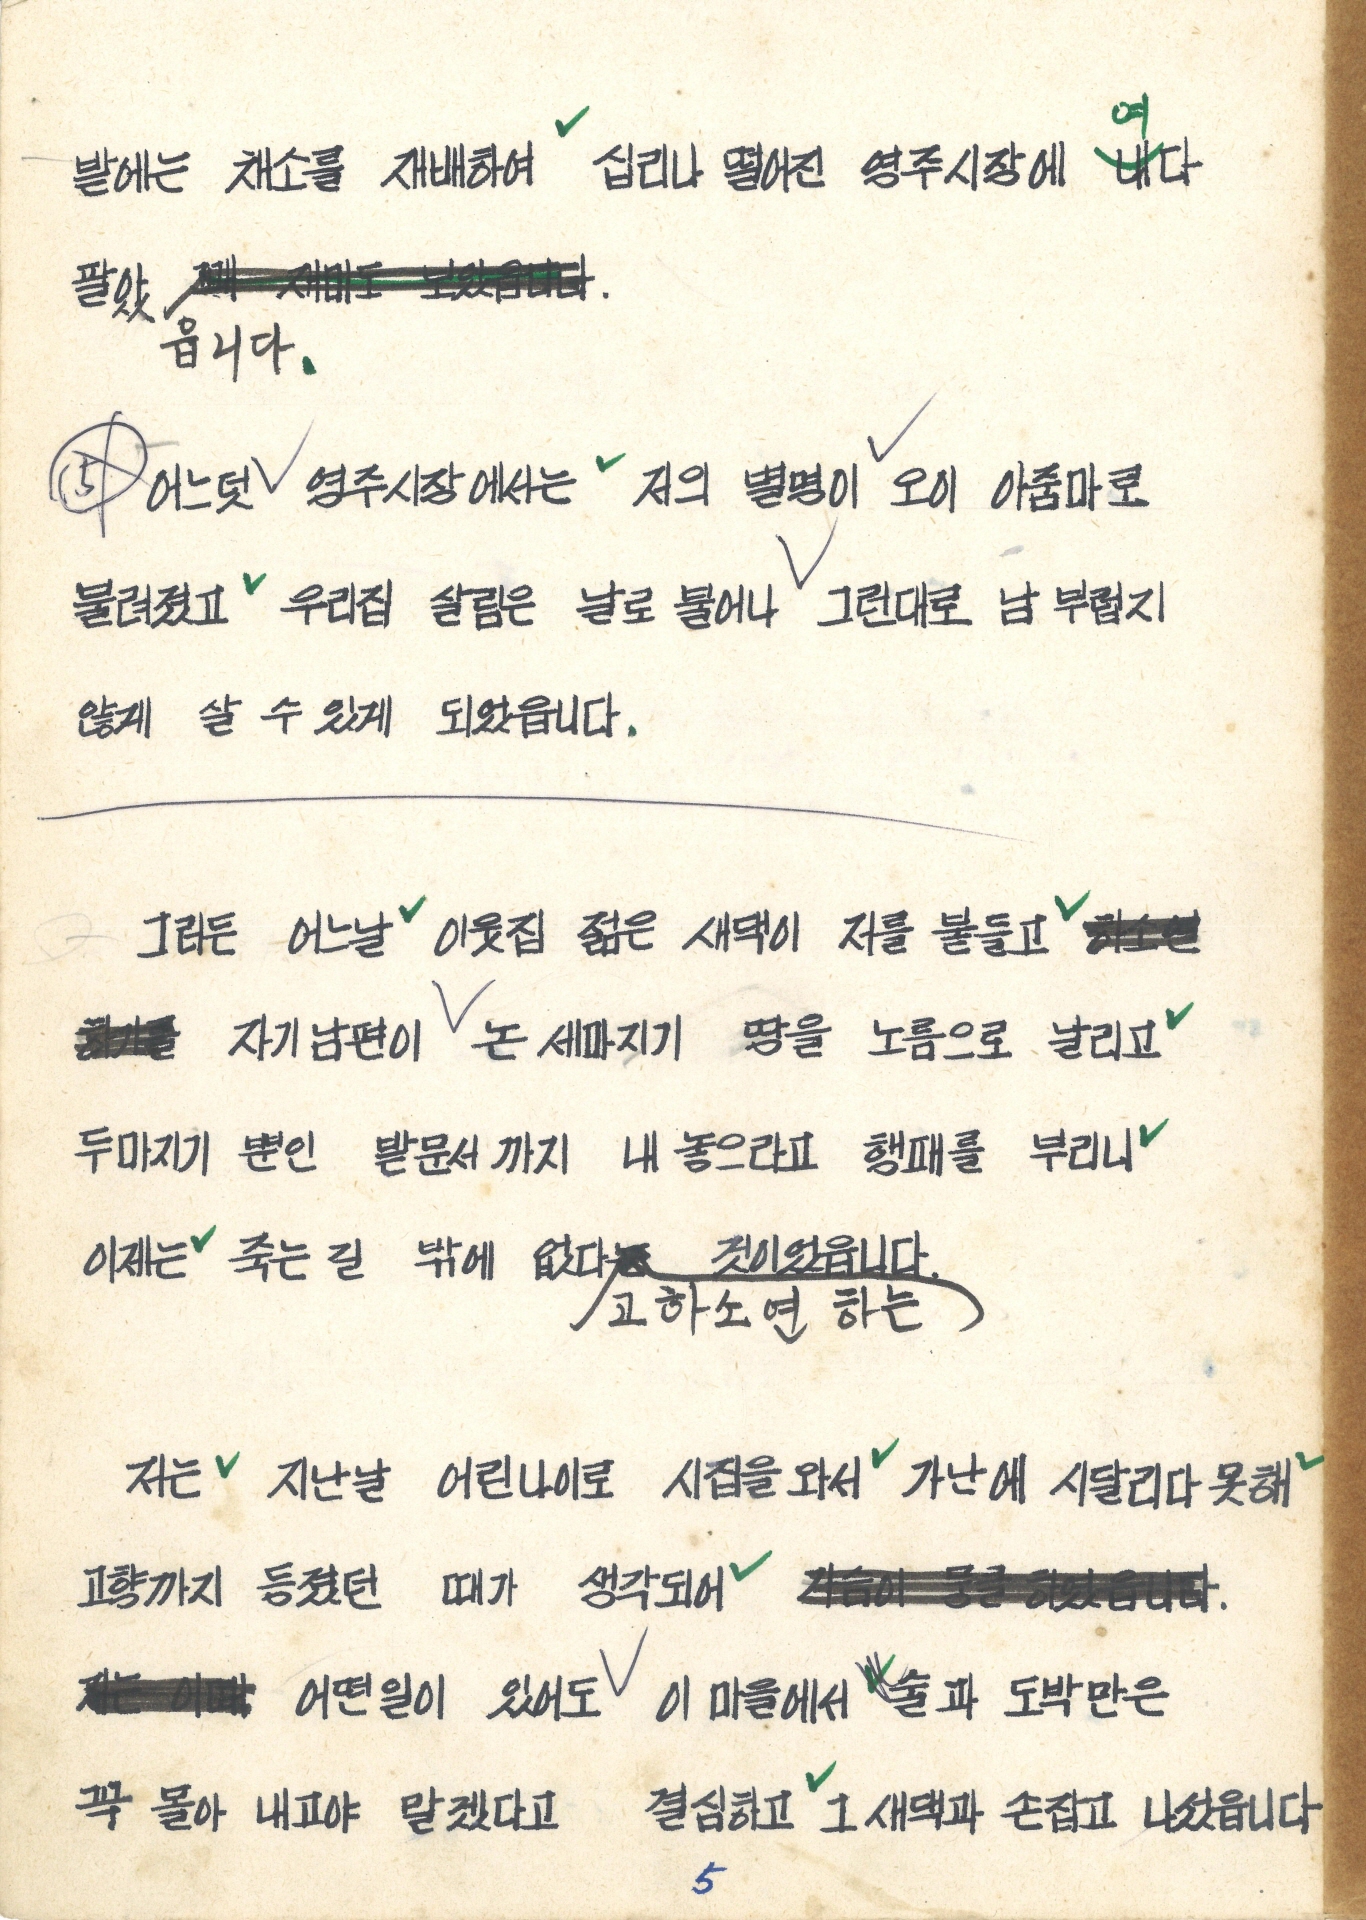 여
밭에는 채소를 재배하여 십리나 떨어진 영주시장에 내다
팔았 재미도 났읍니다.
읍니다.
(5) 어느덧 영주시장에서는 저의 별명이 오이 아줌마로
불려졌고 우리집 살림은 날로 불어나 그런대로 남 부럽지
않게 살 수 있게 되었읍니다.
그러든 어느날 이웃집 젊은 새댁이 저를 붙들고 하소연
하기를 자기남편이 논 세마지기 땅을 노름으로 날리고
두마지기 뿐인 밭문서까지 내 놓으라고 행패를 부리니
이제는 죽는 길 밖에 없다는 것이었읍니다.
고 하소연 하는
저는 지난날 어린나이로 시집을 와서 가난에 시달리다 못해
고향까지 등졌던 때가 생각되어 가슴이 뭉클 하였읍니다.
저는 이때 어떤일이 있어도 이 마을에서 술과 도박만은
꼭 몰아 내고야 말겠다고 결심하고 그 새댁과 손잡고 나섰읍니다
5